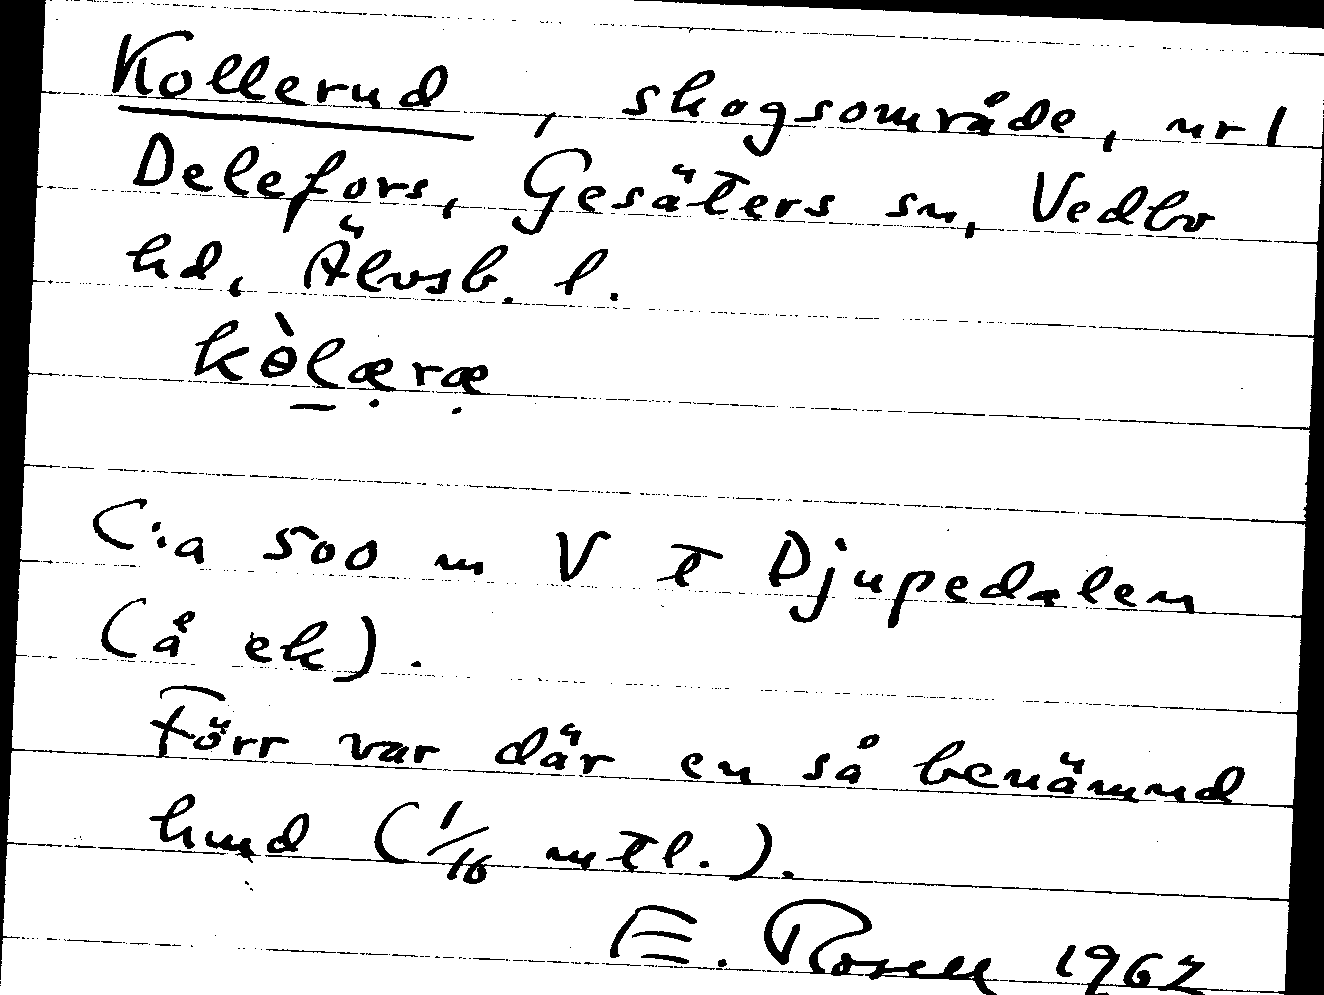 Kollerud, skogsområde, nr 1
Delefors, Gesäters sn, Vedbo
hd, Älvsb. l.
kòlæræ
C:a 500 m V t Djupedalen
(å ek).
Förr var där en så benämnd
hmd (1/16 mtl.).
E. Rosell 1962